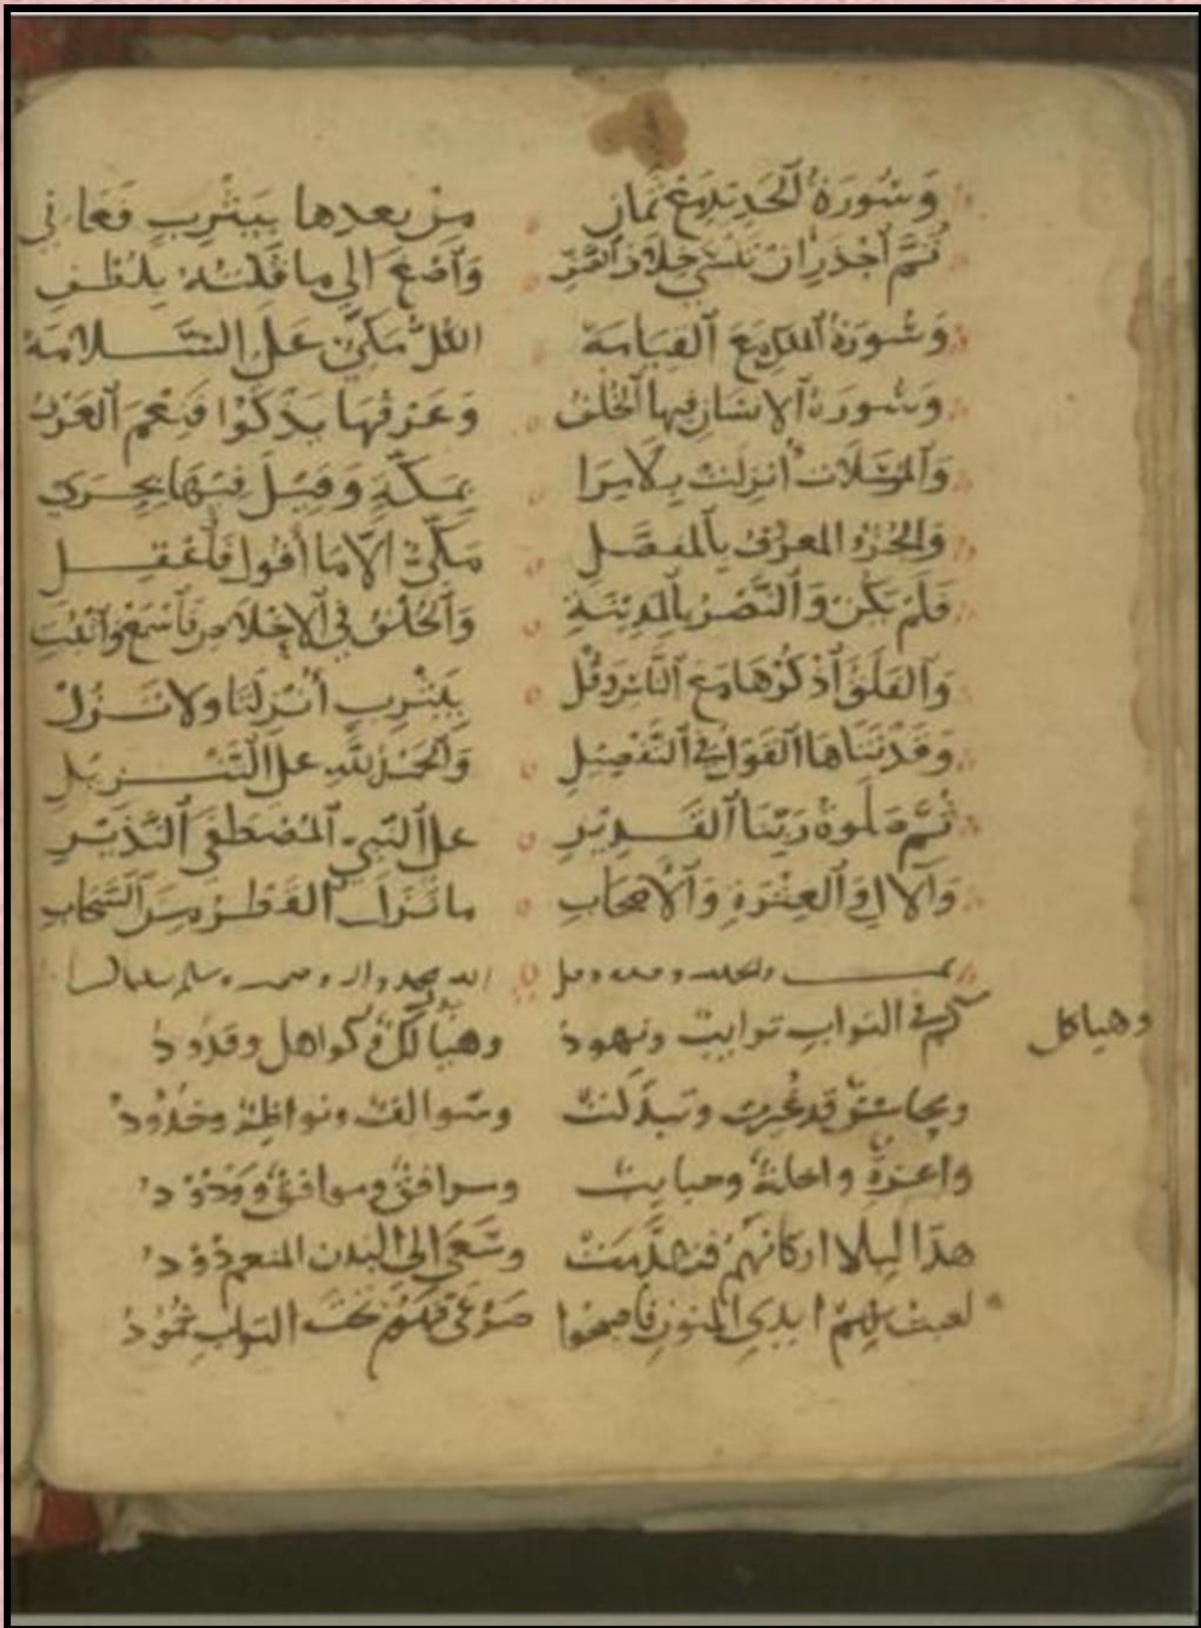 وَسُورَةُ الْحَدِيدِ مَعْ ثَمَانِ مِنْ بعدِها بِيَثْرِبٍ فَعَانِي
ثُمَّ اَجْدَرِ ان وَاَصْغِ اِلَي ما قُلْتُهُ بِلُطْفِ
وَسُورَةُ الملكِ مَعَ القِيَامَهْ الكُلُّ مَكِيٌّ عَلَي السَّلَامَهْ
وَسُورَةُ الاِنسَانِ فيها الخُلْفُ وَعَرْفُهَا فَنِعْمَ العَرْفُ
وَالمُرْسَلَاتُ اُنزِلَتْ بِلَا مِرَا بِمَكَّةٍ وَقِيلَ فِيهَا بِحِرَي
وَالجُزْءُ المعرُوفُ بِالمفصَّلِ مَكِّيٌّ اِلَّا مَا أقُولُ فَاعْقِلِ
فَلَمْ يَكُنْ وَالنَّصْرُ بِالمَدِينَةِ وَالخُلْفُ فِي الاِخْلَاصِ فَاسْمَعْ وَاثْبُتِ
وَالفَلَقُ اذْكُرْهَا مَعَ النَّاسِ وَقُلْ بِيَثْرِبٍ أُنْزِلَتَا ولا تَزُلْ
وَقَدْ تَنَاهَا القَوْلُ فِي التَّفْصِيلِ وَالحَمْدُ لِلَّهِ عَلَي التَّنْزِيلِ
ثُمَّ صَلَوةُ رَبِّنَا القَدِيرِ علي النَّبِيِّ المُصْطَفَي النَّذِيرِ
وَالآلِ وَالعِتْرَةِ وَالأَصْحَابِ ما نَزَلَ القَطْرُ مِنَ السَّحَابِ
تمت والحمد لله وحده وصلي الله محمد واله وصحبه وسلم
كم في الترابِ ترايبٌ ونهودُ وهياكلٌ وكواهل وقدُودُ
وهياكل
ومحاسنٌ قد غُيرت وتبدَّلتْ وسوالفٌ ونواظرٌ وخُدُودُ
واعزةٌ واخلةٌ وحبايبٌ ومرافقٌ وموافقٌ ووَدُوْدُ
هدَّ البلا اركانَهُمْ فتهدَّمتْ وسَعَي اِلي البدن المنعم دُوْدُ
لعبتْ بهِمْ ايدي المنونِ فاصبحوا صَرْعَي فَهُمْ تحْتَ الترابِ هُمُوْدُ